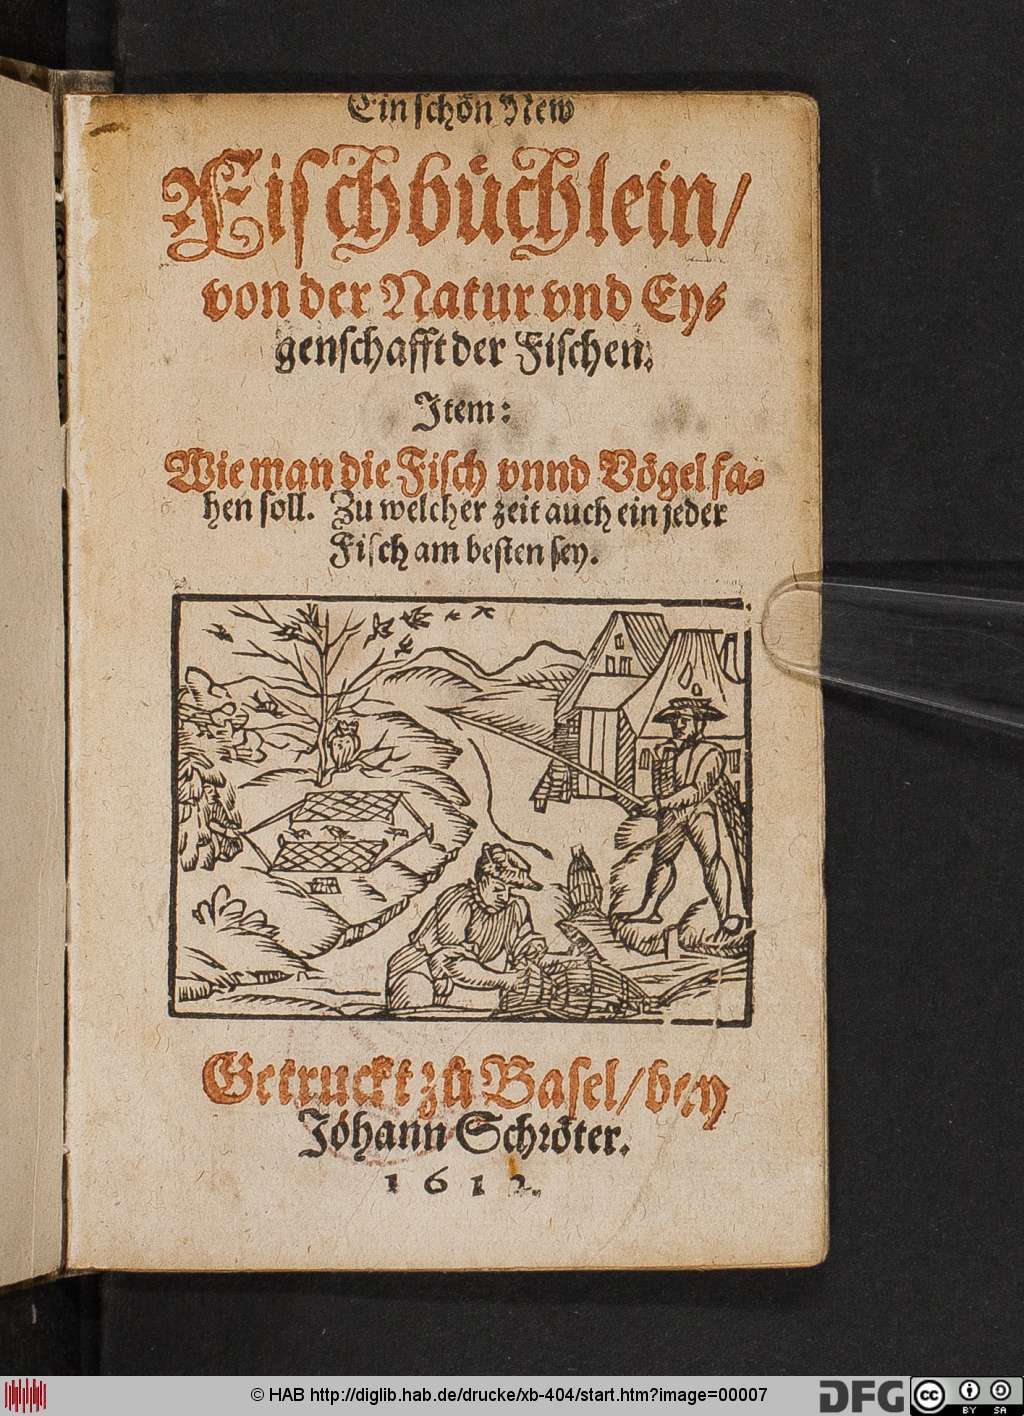 Ein schön New
Fischbüchlein/
von der Natur vnd Ey⸗
genschafft der Fischen.
Item:
Wie man die Fisch vnnd Vögel fa⸗
hen soll. Zu welcher zeit auch ein jeder
Fisch am besten sey.
Getruckt zů Basel/ bey
Johann Schröter.
1612.
© HAB http://diglib.hab.de/drucke/xb-404/start.htm?image=00007
DFG
cc
BY SA